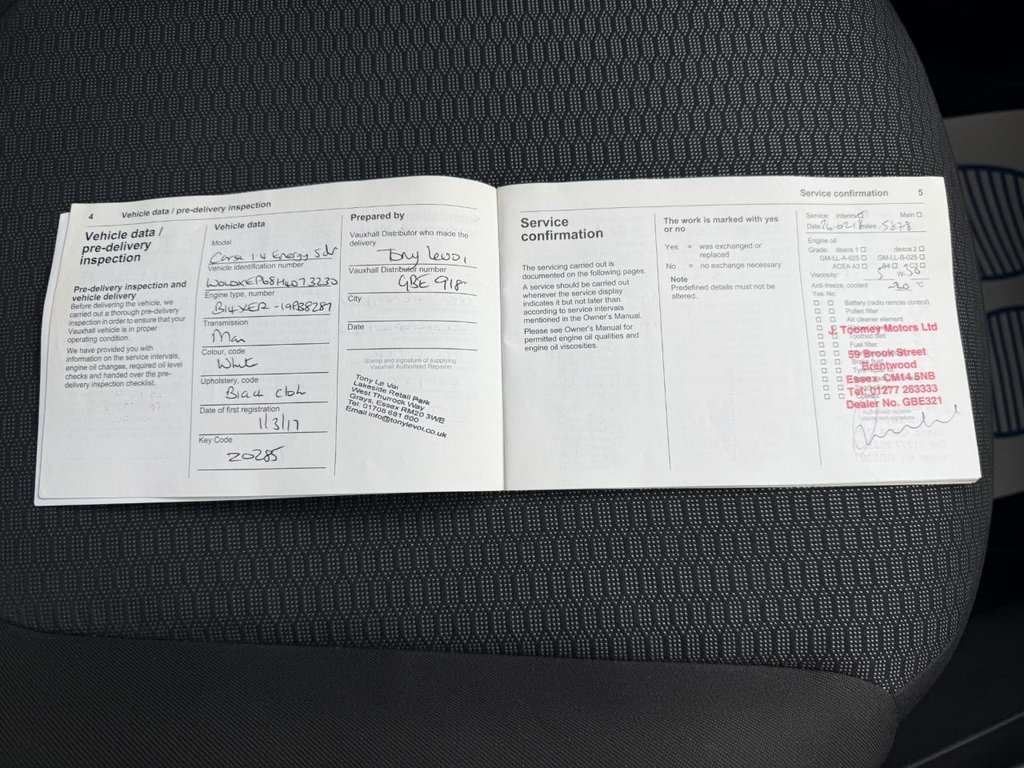 4 Vehicle data / pre-delivery inspection
Vehicle data /
pre-delivery
inspection
Pre-delivery inspection and
vehicle delivery
Before delivering the vehicle, we
carried out a thorough pre-delivery
inspection in order to ensure that your
Vauxhall vehicle is in proper
operating condition.
We have provided you with
information on the service intervals,
engine oil changes, required oil level
checks and handed over the pre-
delivery inspection checklist.
Vehicle data
Model
Corsa 1.4 Energy 5dr
Vehicle identification number
Engine type, number
Transmission
Man
Colour, code
White
Upholstery, code
Black cloth
Date of first registration
1/3/17
Key Code
20285
Prepared by
Vauxhall Distributor who made the
delivery
Tony Levoi
Vauxhall Distributor number
GBE 918
City
Date
Stamp and signature of supplying
Vauxhall Authorised Repairer
Tony Le Voi
Lakeside Retail Park
West Thurrock Way
Grays, Essex RM20 3WE
Tel: 01708 681 800
Email info@tonylevoi.co.uk
Service confirmation 5
Service
confirmation
The servicing carried out is
documented on the following pages.
A service should be carried out
whenever the service display
indicates it but not later than
according to service intervals
mentioned in the Owner's Manual.
Please see Owner's Manual for
permitted engine oil qualities and
engine oil viscosities.
The work is marked with yes
or no
Yes = was exchanged or
replaced
No = no exchange necessary
Note
Predefined details must not be
altered.
Service: Interim Main
Date Miles
Engine oil
Grade: dexos 1 dexos 2
GM-LL-A-025 GM-LL-B-025
ACEA A3
Viscosity: 5 W-30
Anti-freeze, coolant -30 °C
Yes No
Battery (radio remote control)
Pollen filter
Air cleaner element
Toothed belt
Fuel filter
J. Toomey Motors Ltd
59 Brook Street
Brentwood
Essex CM14 5NB
Tel: 01277 263333
Dealer No. GBE321
Authorised repairer
stamp and signature